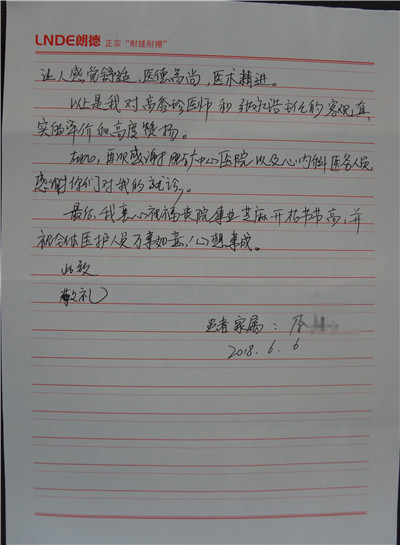 LNDE朗德 正宗“耐搓耐擦”
让人感觉舒适，医德高尚，医术精进。
以上是我对高 医师和 主任的客观真
实的评价和高度赞扬。
在此，再次感谢 中心医院以及心内科医务人员，
感谢你们对我的就诊。
最后，我衷心祝福贵院事业芝麻开花节节高，并
祝全体医护人员万事如意，心想事成。
此致
敬礼
患者家属：
2018.6.6